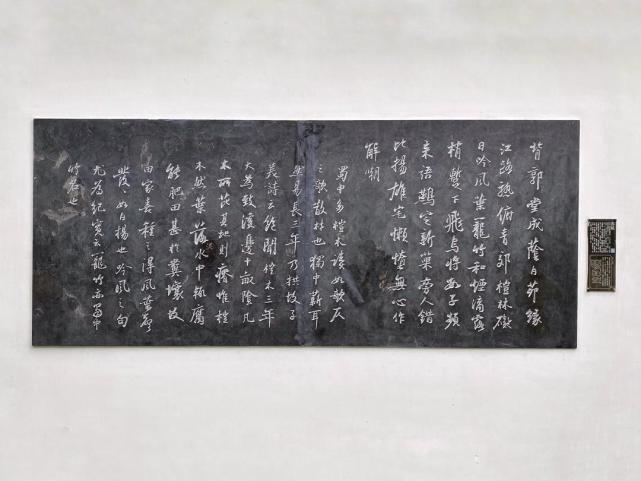 背郭堂成蔭白茆緣
江路熟俯青郊榿林礙
日吟風葉籠竹和煙滴露
梢蹔下飛烏將數子頻
來語鷰定新巢旁人錯
比揚雄宅懶惰無心作
解嘲
蜀中多榿木讀如欹仄
之欹散材也獨中薪耳
然易長三年乃拱故子
美詩云飽聞榿木三年
大為致溪邊十畝陰凡
木所芘其地則瘠惟榿
不然葉落水中輒腐
能肥田甚於糞壤故
田家喜種之得風葉聲
發發如白楊也吟風之句
尤為紀實云籠竹亦蜀中
竹名也